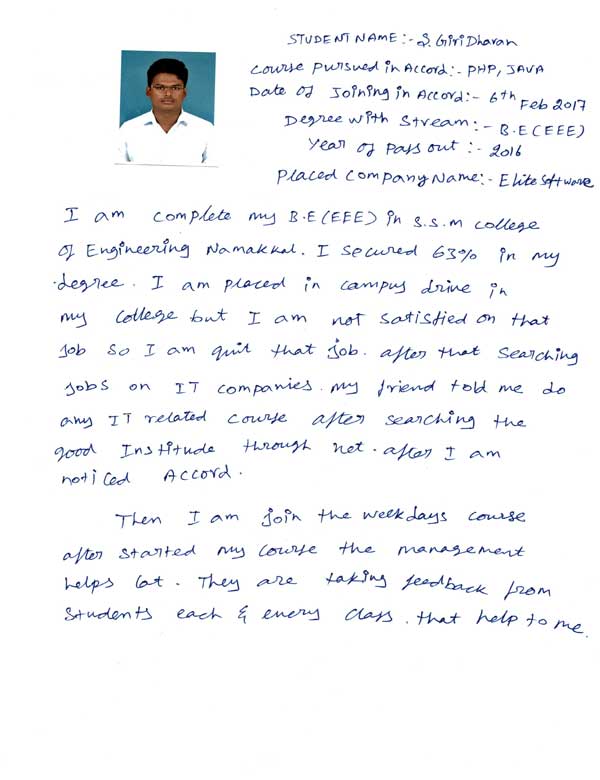 STUDENT NAME :- S. Giri Dharan
Course pursued in Accord :- PHP, JAVA
Date of Joining in Accord :- 6th Feb 2017
Degree with Stream :- B.E (EEE)
Year of pass out :- 2016
Placed Company Name :- Elite Software
I am complete my B.E (EEE) in S.S.M college
of Engineering Namakkal. I secured 63% in my
degree. I am placed in campus drive in
my college but I am not satisfied on that
job so I am quit that job. after that searching
jobs on IT companies. my friend told me do
any IT related course after searching the
good Institude through net. after I am
noticed Accord.
Then I am join the weekdays course
after started my course the management
helps lat. They are taking feedback from
students each & every class. that help to me.